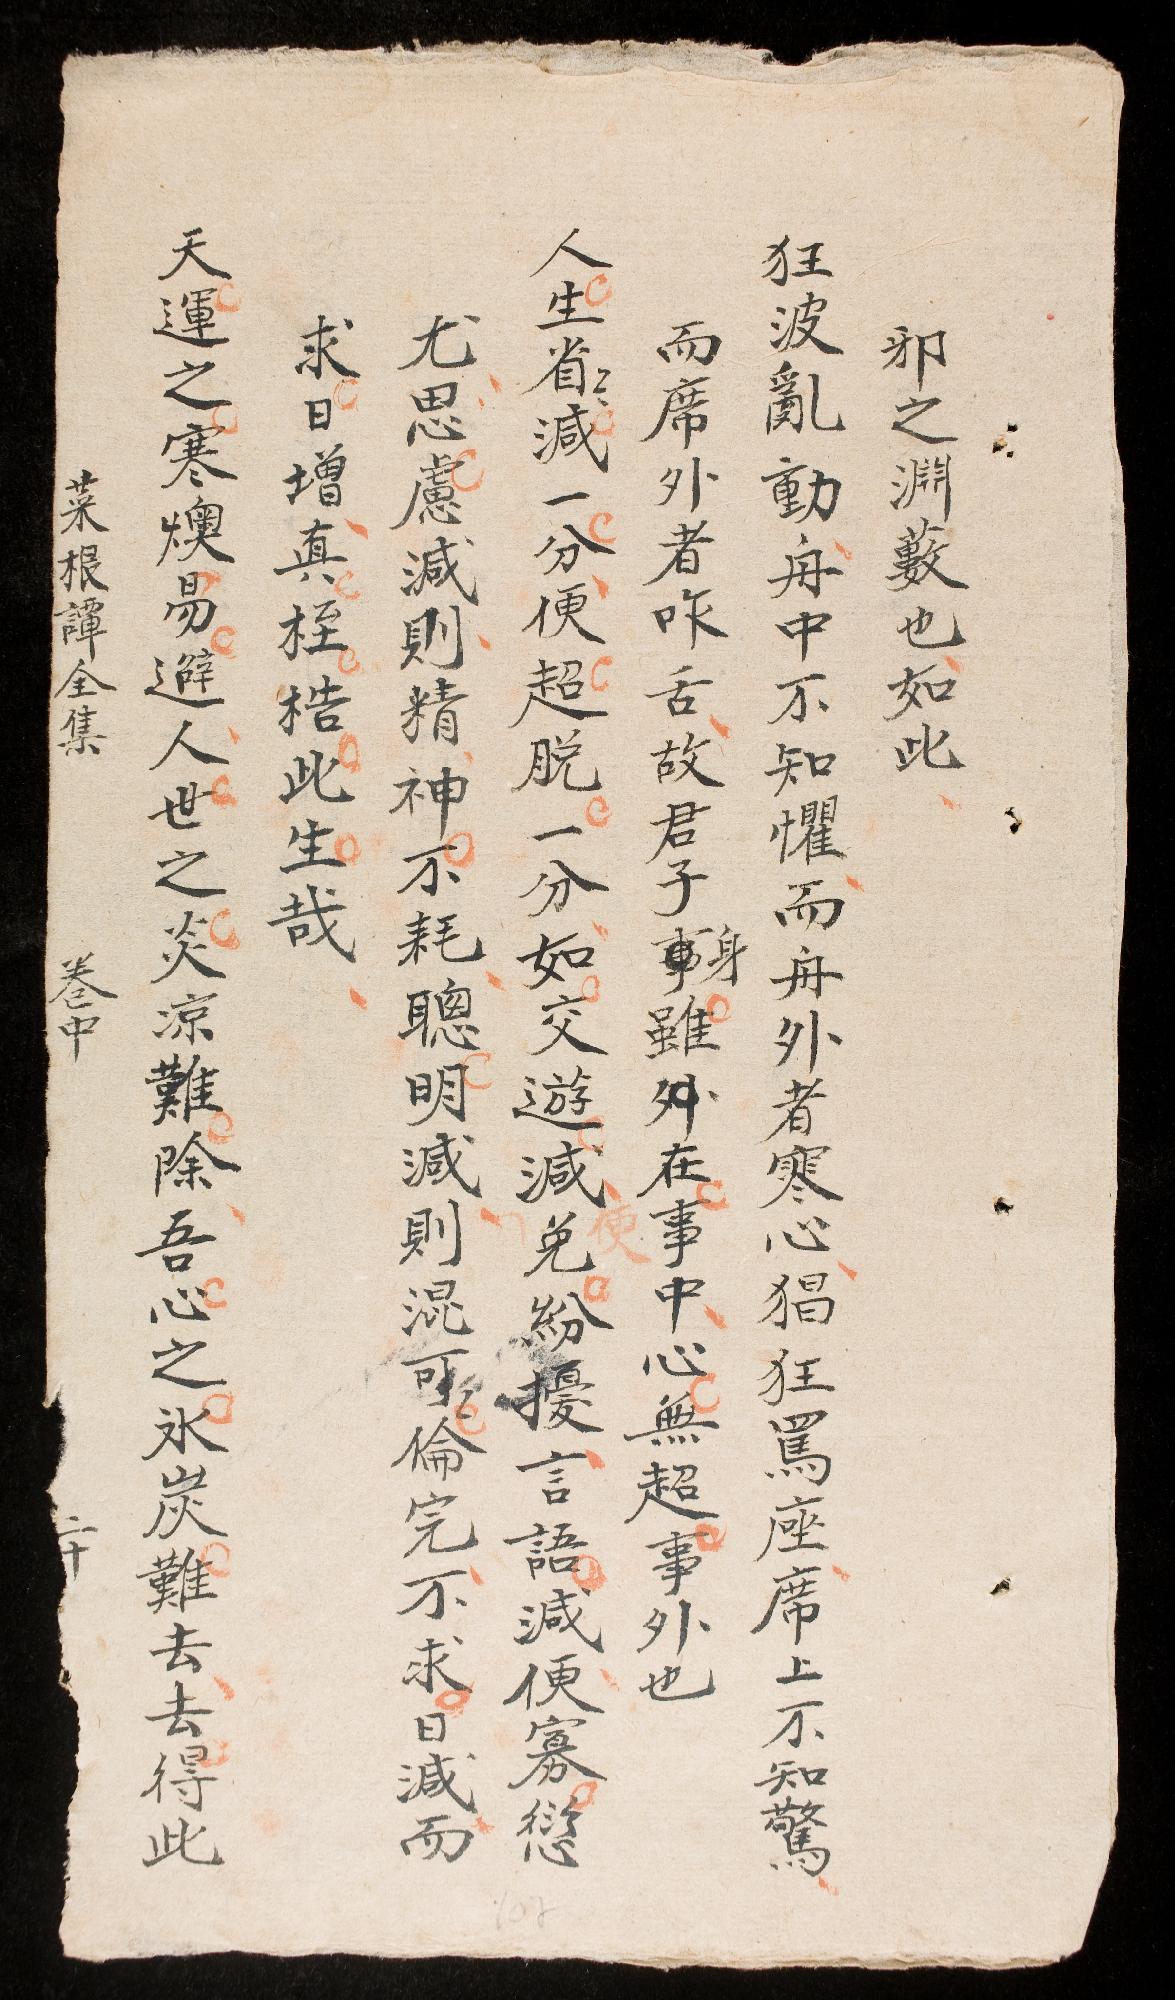 邪之淵藪也如此
狂波亂動舟中不知懼而舟外者寒心猖狂罵座席上不知驚
而席外者咋舌故君子事身雖外在事中心無超事外也
人生省減一分便超脱一分如交遊減免紛擾言語減便寡愆
便
尤思慮減則精神不耗聰明減則混可倫完不求日減而
求日增真桎梏此生哉
天運之寒燠易避人世之炎凉難除吾心之氷炭難去去得此
菜根譚全集 卷中 二十
107